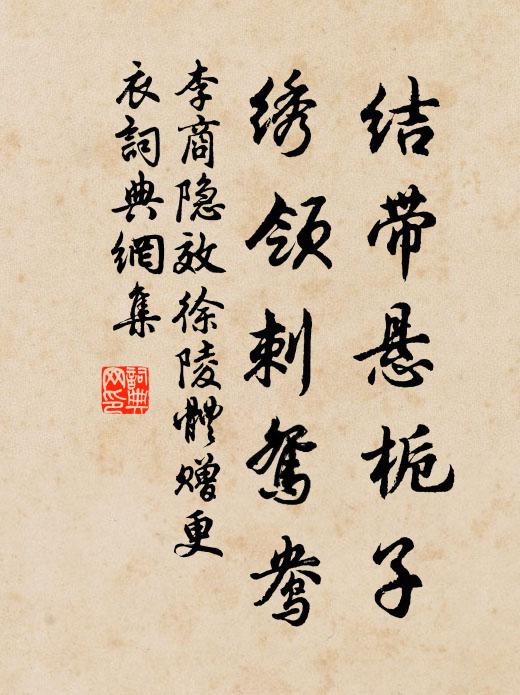 结带悬栀子
绣领刺鸳鸯
李商隐效徐陵體赠更
衣詞典網集
詞典网印